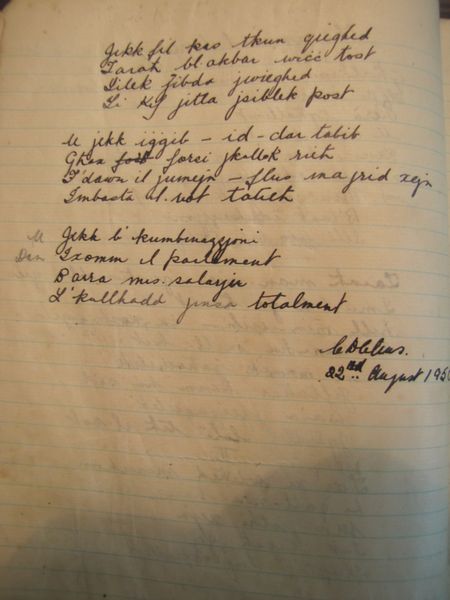 Jekk fil kas tkun qieghed
Tarah bl akbar wicc tost
Lilek jibda jwieghed
Li Kif jitla jsiblek post
U jekk iggib - id - dar tabib
Ghax forsi jkollok rieh
F'dawn il jumejn - flus ma jrid xejn
Imbasta il. vot tatieh
U Jekk b' kumbinazzjoni
Dan Ixomm il parlament
Barra mis. salarju
L' kullhadd jinsa totalment
22nd August 195